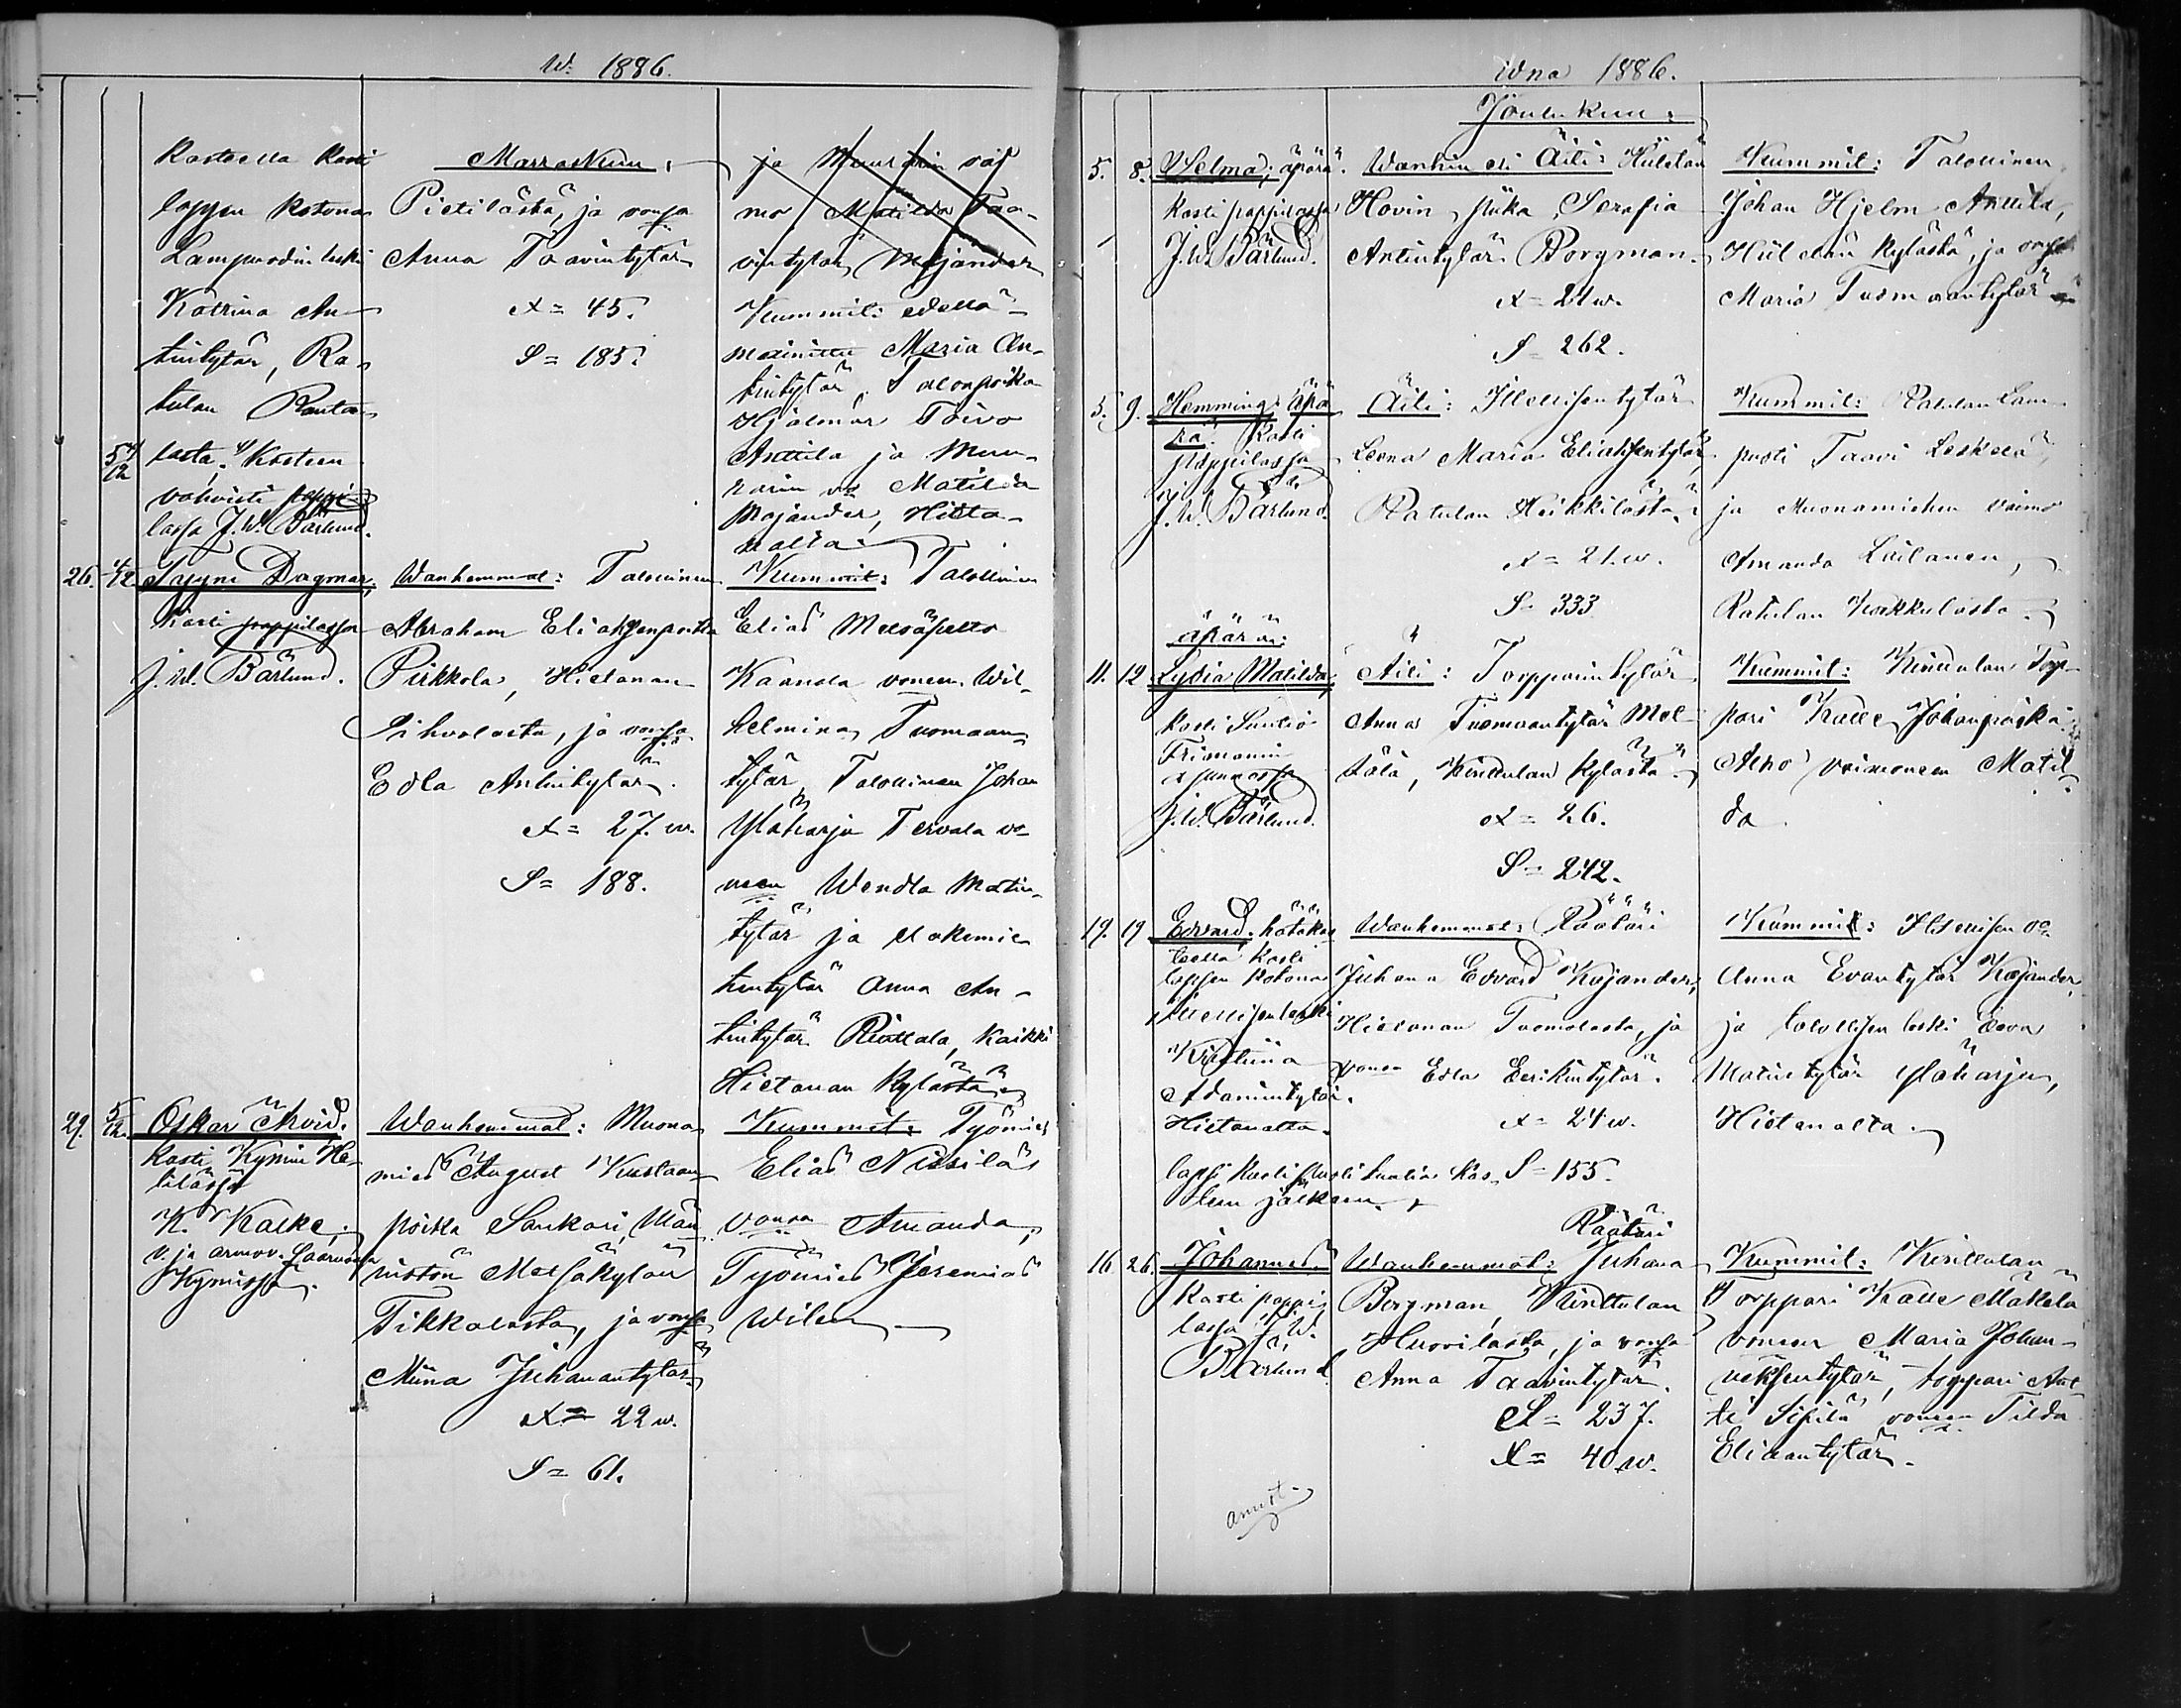 W. 1886.
Kasteella kasti
lapsen kotona
Lampuodin leski
Katrina An-
tintytär, Ra-
tulan Ranta-
5 4/12 lasta. Kasteen
vahvisti pappi-
lassa J. W. Bärlund.
Marraskuu:
Pietilästä, ja vonsa
Anna Taavintytär
X = 45.
S = 185.
ja Muurarin vai
mo Matilda Taa-
vintytär Majander
Kummit: edellä
mainittu Maria An-
tintytär, Talonpoika
Hjalmar Toivo
Anttila ja Muu-
rarin vo Matilda
Majander, Hieta-
nalta.
26. 4/12 Tyyni Dagmar,
Kasti pappilassa
J. W. Bärlund.
Wanhemmat: Talollinen
Abraham Eliaksenpoika
Pirkkola, Hietanan
Pihvolasta, ja vonsa
Edla Antintytär.
X = 27. w.
S = 188.
Kummit: Talollinen
Elias Metsäpelto
Kaansa vonen. Wil-
helmina Tuomaan-
tytär, Talollinen Johan
Yläharju Tervala vo-
nsa Wendla Matin-
tytär ja Mäkimie
hentytär Anna An-
tintytär Riattala, kaikki
Hietanan kylästä.
29. 5/12. Oskar Arvid.
Kasti Kymin He-
lilässä
K. Kalke,
v. ja armov. saarnaaja
Kymissä.
Wanhemmat: Muona
mies August Kustaan-
poika Sankari, Män
nistön Metsäkylän
Tikkalasta, ja vonsa
Miina Juhanantytär
X = 22 w.
S = 61.
Kummit: Työmies
Elias Nissilä
vonsa Amanda,
Työmies Jeremias
Wilen
wna 1886.
Joulukuu:
5. 8. Selma, äpärä.
Kasti pappilassa
J. W. Bärlund.
Wanhin eli Äiti: Hiiletän
Hovin piika Serafia
Antintytär Borgman.
X = 21 w.
S = 262.
Kummit: Talollinen
Johan Hjelm Anttila,
Hiiletän kylästä, ja vonsa
Maria Tuomaantytär
5. 9. Hemming äpä
rä. Kasti
pappilassa
J. W. Bärlund.
Äiti: Itsellisentytär
Leena Maria Eliaksentytär,
Ratulan Heikkilästä.
X = 21. w.
S = 333
Kummit: Ratulan Lam
puoti Taavi Leskelä,
ja Muonamiehen vaimo
Amanda Lailanen,
Ratulan Kaakkulasta.
äpärä:
11. 12 Lydia Matilda,
Kasti Suntio
Frimanin
asunnossa
J. W. Bärlund.
Äiti: Torpparintytär
Anna Tuomaantytär Mel-
tälä, Kinttulan kylästä.
X = 26.
S = 242.
Kummit: Kinttulan Torp-
pari Kalle Johanpoika
Alho vaimonsa Matil-
da.
19. 19 Edvard. hätäkas
teella kasti
lapsen kotona
itsellisen leski
Kristiina
Adamintytär.
Hietanalta.
lapsi kuoli kuoli kas
teen jälkeen.
Wanhemmat: Räätäri
Juhana Edvard Kajander,
Hietanan Tuomolasta, ja
vonsa Edla Eerikintytär.
X = 24 w.
S = 155.
Kummit: Itsellisen vo
Anna Evantytär Kajander,
ja talollisen leski Eeva
Matintytär Yläharju,
Hietanalta.
16. 26. Johannes
Kasti pappi-
lassa J. W.
Bärlund.
Räätäri
Wanhemmat: Juhana
Bergman, Kinttulan
Huovilasta, ja vonsa
Anna Taavintytär.
S = 237.
X = 40 w.
Kummit: Kinttulan
Torppari Kalle Mäkelä
vonsa Maria Johan-
neksentytär, torppari Ant
ti Sipilä vonsa Tilda
Eliaantytär.
annet.